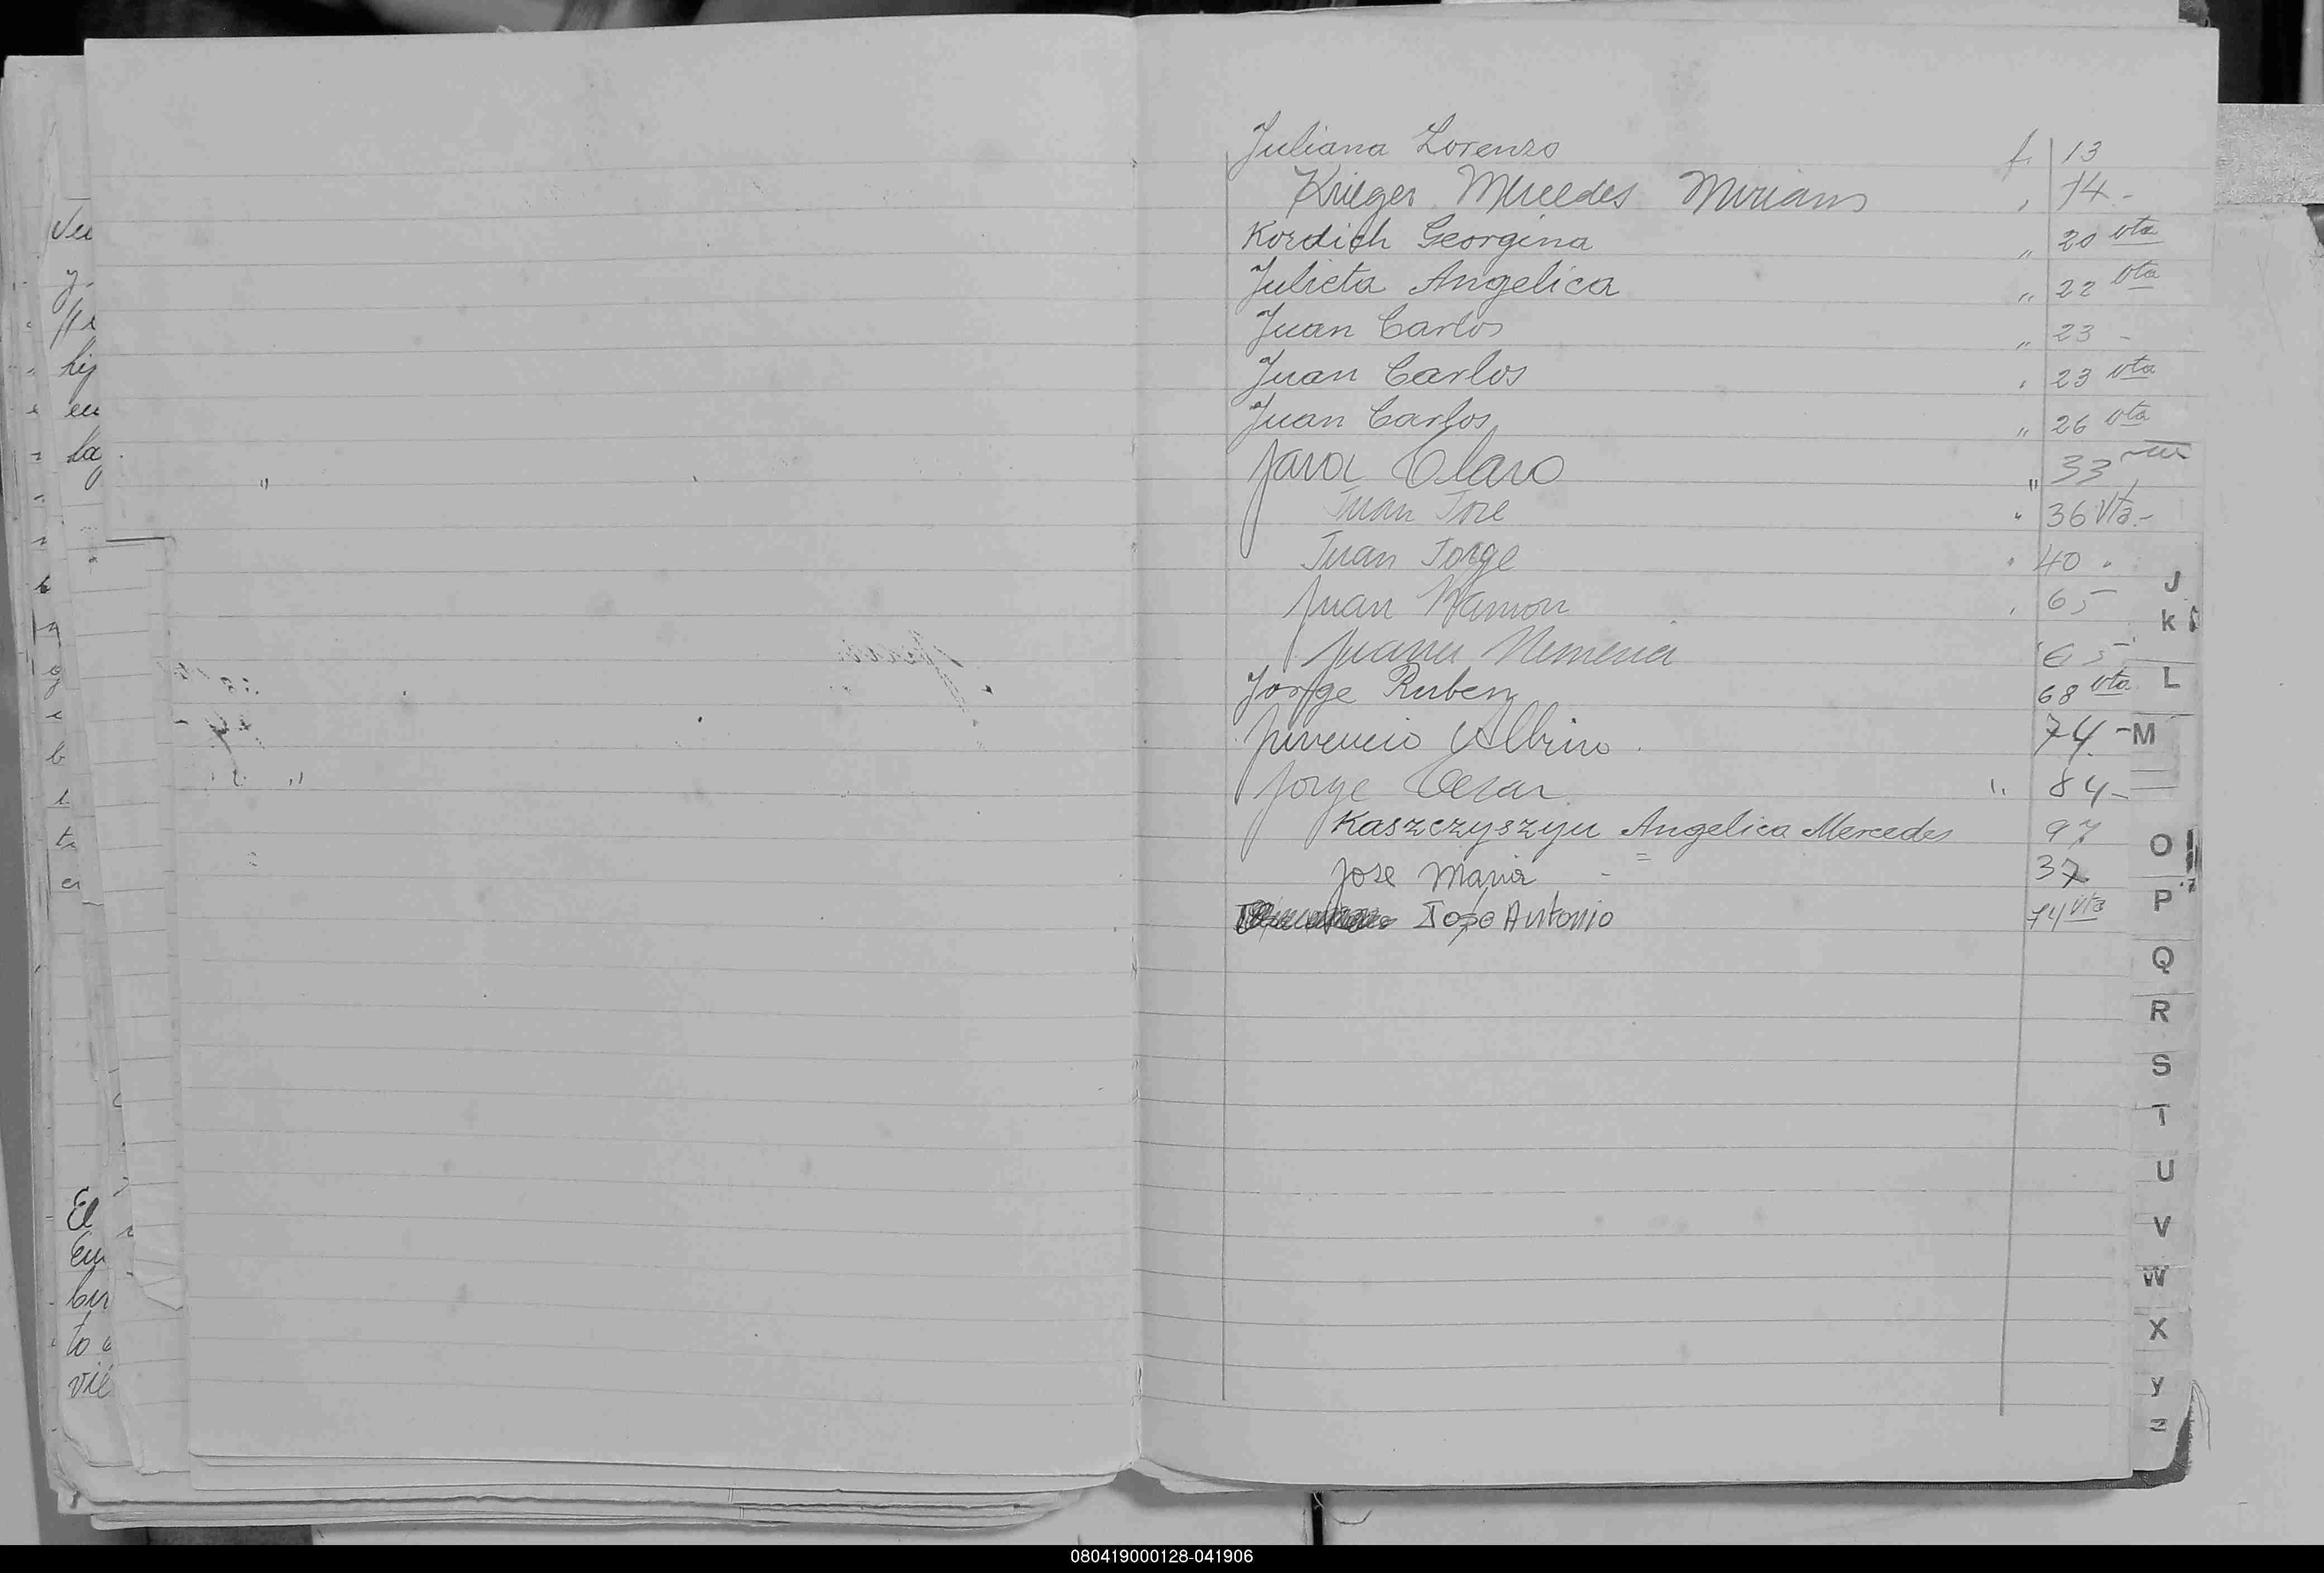 Juliana Lorenzo f. 13
Krieger Mercedes Miriam , 14 -
Kordich Georgina " 20 vta
Julieta Angelica " 22 vta
Juan Carlos " 23 -
Juan Carlos " 23 vta
Juan Carlos " 26 vta
Jara Claro " 33
Juan Jose " 36 Vta.-
Juan Jorge " 40 .
Juan Ramon , 65
Juana Nemesia 65
Jorge Ruben 68 vta
Juvencio Albino . 74 -
Jorge Cesar " 84 -
Kaszczyszyu Angelica Mercedes 97
Jose Maria - 37
Jose Antonio 74 Vta
J
K
L
M
O
P
Q
R
S
T
U
V
W
X
y
z
Vu
y
hij
en
la
El
Em
to
vil
080419000128-041906